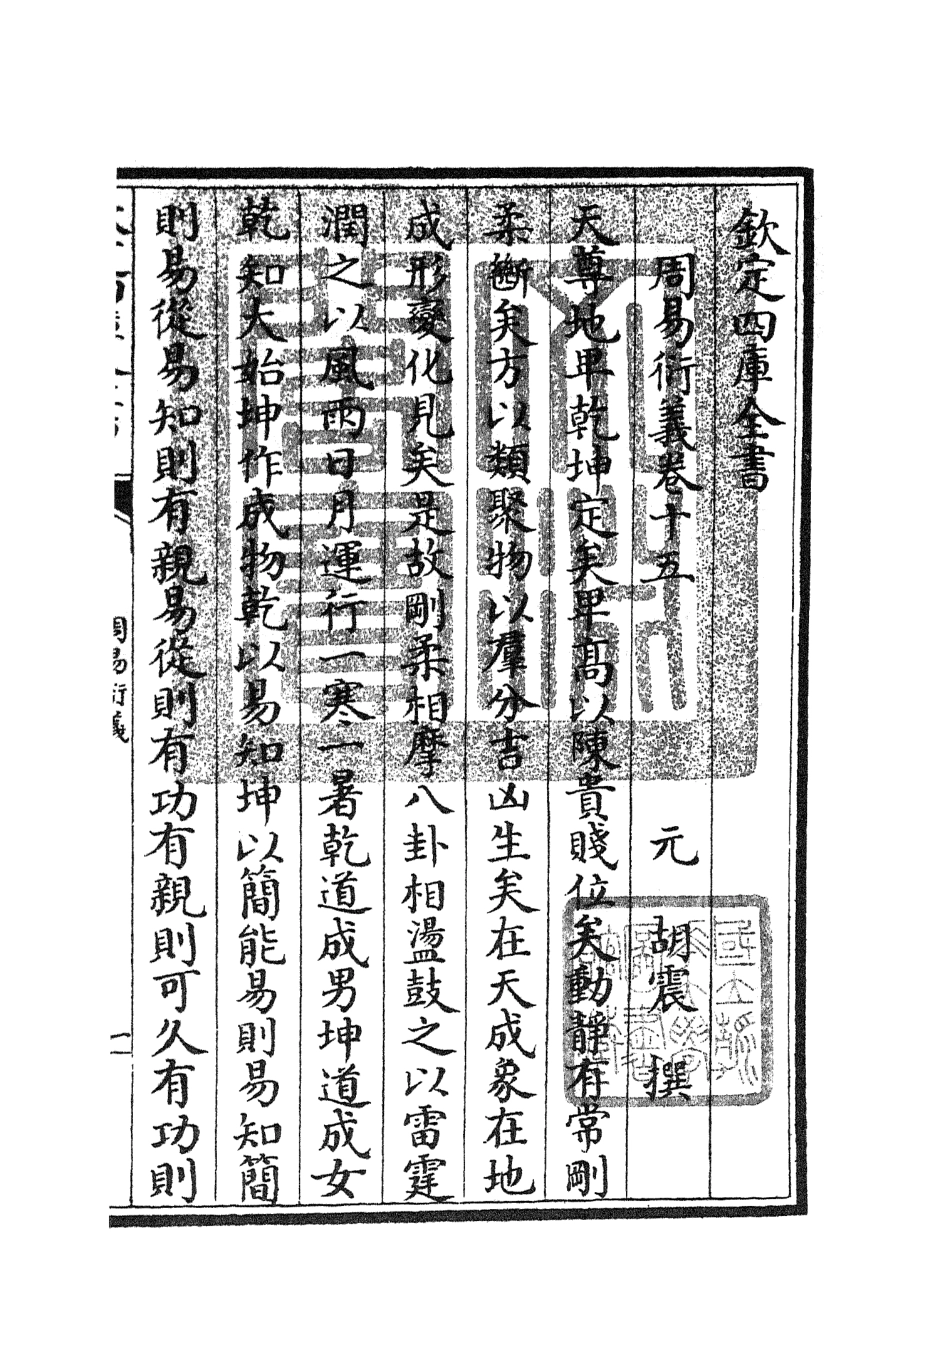 欽定四庫全書
周易衍義卷十五
元 胡震 撰
天尊地卑乾坤定矣卑高以陳貴賤位矣動靜有常剛
柔斷矣方以類聚物以羣分吉凶生矣在天成象在地
成形變化見矣是故剛柔相摩八卦相盪鼓之以雷霆
潤之以風雨日月運行一寒一暑乾道成男坤道成女
乾知大始坤作成物乾以易知坤以簡能易則易知簡
則易從易知則有親易從則有功有親則可久有功則
周易衍義